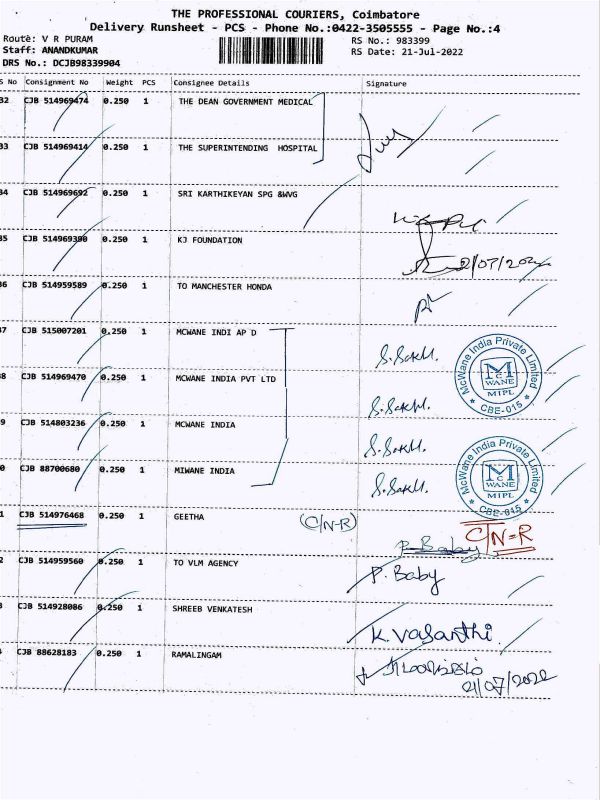 THE PROFESSIONAL COURIERS, Coimbatore
Delivery Runsheet - PCS - Phone No.:0422-3505555 - Page No.:4
Route: V R PURAM
RS No.: 983399
Staff: ANANDKUMAR
RS Date: 21-Jul-2022
DRS No.: DCJB98339904
S No Consignment No Weight PCS Consignee Details Signature
32 CJB 514969474 0.250 1 THE DEAN GOVERNMENT MEDICAL
33 CJB 514969414 0.250 1 THE SUPERINTENDING HOSPITAL
34 CJB 514969692 0.250 1 SRI KARTHIKEYAN SPG &WVG
35 CJB 514969390 0.250 1 KJ FOUNDATION
36 CJB 514959589 0.250 1 TO MANCHESTER HONDA
37 CJB 515007201 0.250 1 MCWANE INDI AP D
McWane India Private Limited
McWANE
MIPL
CBE-015
8 CJB 514969470 0.250 1 MCWANE INDIA PVT LTD
9 CJB 514803236 0.250 1 MCWANE INDIA
McWane India Private Limited
McWANE
MIPL
CBE-015
0 CJB 88700680 0.250 1 MIWANE INDIA
1 CJB 514976468 0.250 1 GEETHA (C/N-R) C/N=R
P. Baby
2 CJB 514959560 0.250 1 TO VLM AGENCY P. Baby
3 CJB 514928086 0.250 1 SHREEB VENKATESH K. Vasanthi.
CJB 88628183 0.250 1 RAMALINGAM
21/07/2022